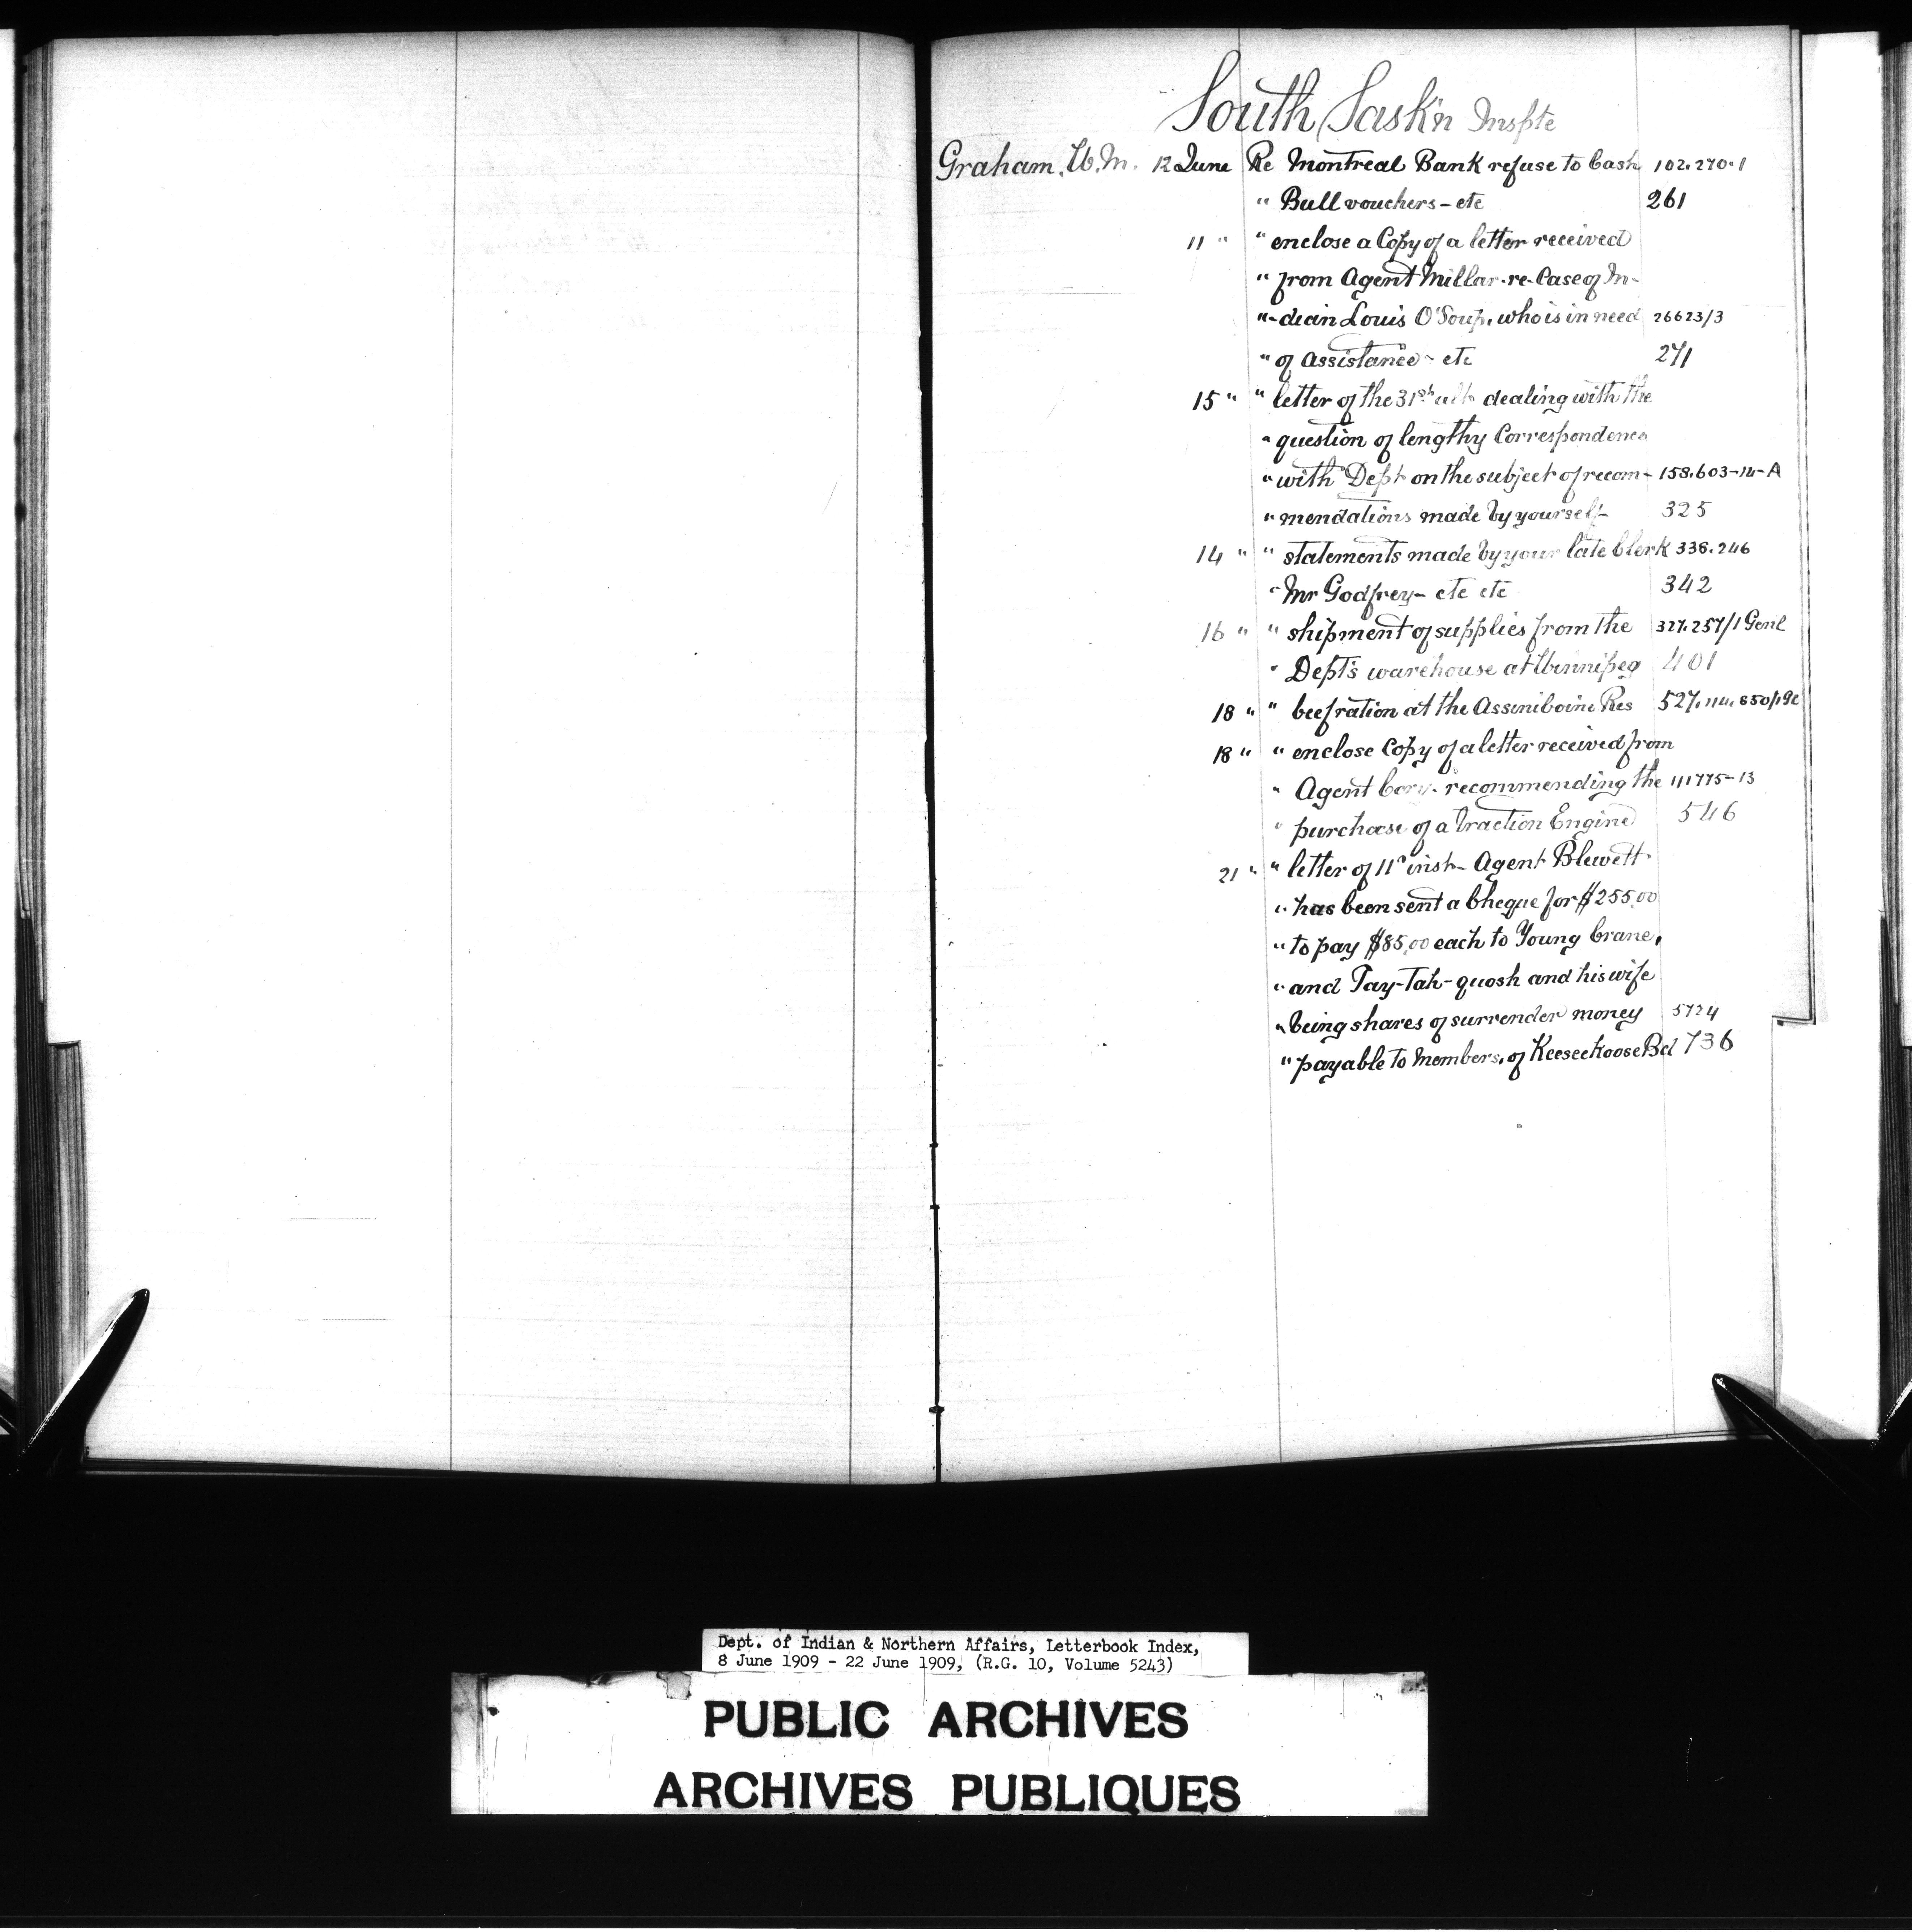 South Sask'n Inspte
Graham. W. M. 12 June Re Montreal Bank refuse to Cash 102.270.1
" Bull vouchers - etc 261
11 " " enclose a Copy of a letter received
" from Agent Millar - re - Case of In-
" -dian Louis O'Soup, who is in need 26623/3
" of Assistance - etc 271
15 " " letter of the 31st ulto dealing with the
" question of lengthy Correspondence
" with Dept on the subject of recom- 158.603-14-A
" mendations made by yourself- 325
14 " " statements made by your late Clerk 336.246
" Mr Godfrey - etc etc 342
16 " " shipment of supplies from the 327.257/1 Genl
" Dept's warehouse at Winnipeg 401
18 " " beef ration at the Assiniboine Res 527.
18 " " enclose Copy of a letter received from
" Agent Cory. recommending the 111775-13
" purchase of a Traction Engine 546
21 " " letter of 11" inst - Agent Blewett
" has been sent a Cheque for $255.00
" to pay $85.00 each to Young Crane,
" and Tay-Tah-quosh and his wife
" being shares of surrender money 5724
" payable to Members, of Keeseekoose Bd 736
Dept. of Indian & Northern Affairs, Letterbook Index,
8 June 1909 - 22 June 1909, (R.G. 10, Volume 5243)
PUBLIC ARCHIVES
ARCHIVES PUBLIQUES